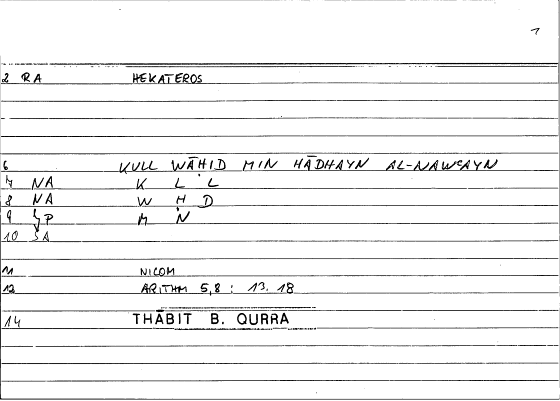 1
2 RA HEKATEROS
6 KULL WĀḤID MIN HĀDHAYN AL-NAWʿAYN
7 NA K L L
8 NA W Ḥ D
9 P M N
10 A
11 NICOM
12 ARITHM 5,8 : 13.18
14 THĀBIT B. QURRA